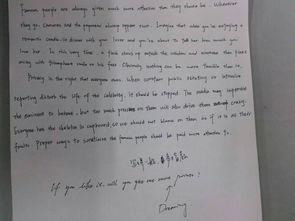 Famous people are always given much more attention than they should be. Wherever
they go, Cameras and the paparazzi always appear
Imagine that while you're enjoying a
romantic candle-lit dinner with your lover and you're about to tell her how much you
love her. In this very time, a flash shows up outside the window and someone
away with triumphant smile on his face. Obviously nothing can be more terrible than it.
Privacy is the right that everyone owns. When constant public scrutiny or intensive
reporting disturb the life of the celebrity, it should be stopped. The media may supervise
the eminent to behave, but too much pressure on them will also drive them crazy.
Everyone has the skeleton in cupboard, so we should not blame on them as if it is all their
faults. Proper ways to scrutinize the famous people should be paid more attention to.
If you like it, will you give me more
Dreaming